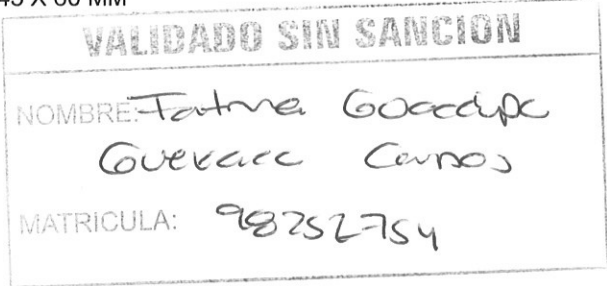 45 X 60 MM
VALIDADO SIN SANCION
NOMBRE: Fatima
Guevara
MATRICULA: 98252754